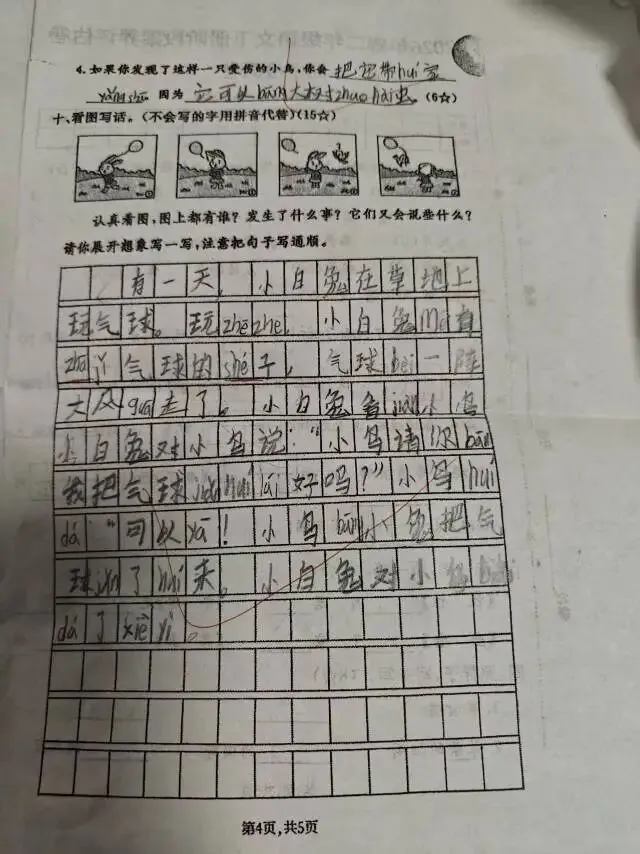 4.如果你发现了这样一只受伤的小鸟,你会 把它带huí家
因为 它可以bāng大树zhuō hài虫。(6☆)
十、看图写话。(不会写的字用拼音代替)(15☆)
认真看图,图上都有谁?发生了什么事?它们又会说些什么?
请你展开想象写一写,注意把句子写通顺。
有一天,小白兔在草地上
玩气球。玩zhe zhe,小白兔méi有
zhuā 气球的shé子,气球bèi一阵
大风guā走了。小白兔看jiàn小鸟
小白兔对小鸟说:“小鸟请你bāng
我把气球 huí lái好吗?”小鸟huí
dá:“可以yā!小鸟bāng小兔把气
球 了huí来。小白兔对小鸟biǎo
dá了xiè yì。
第4页,共5页